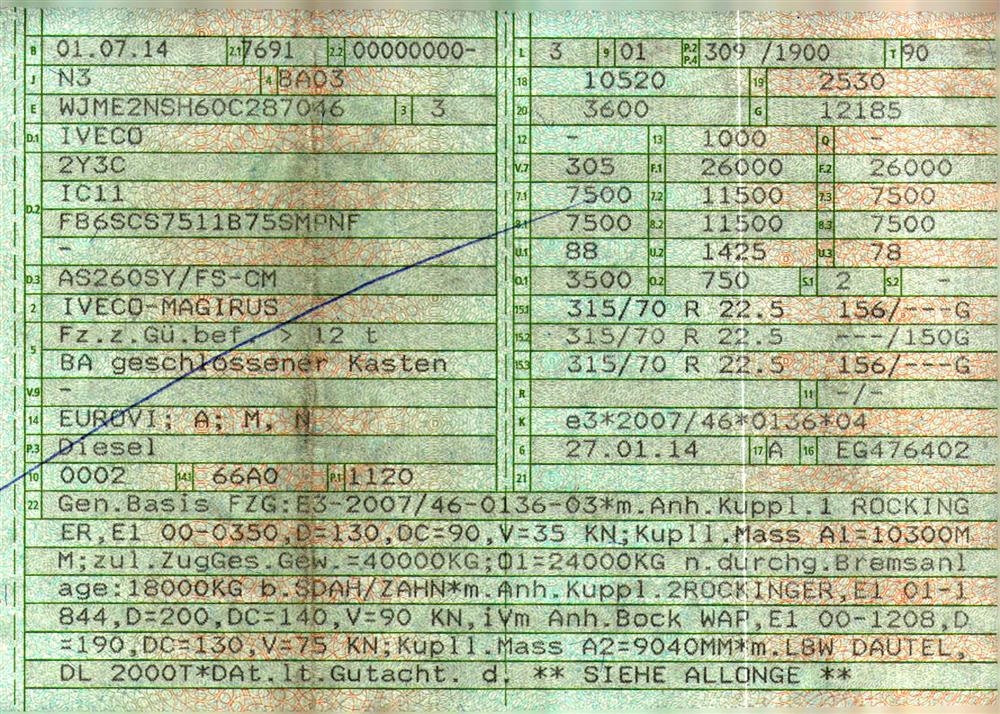 B 01.07.14 2.1 7691 2.2 00000000-
J N3 4 BA03
E WJME2NSH60C287046 3 3
D.1 IVECO
2Y3C
D.2 IC11
FB6SCS7511B75SMPNF
-
D.3 AS260SY/FS-CM
2 IVECO-MAGIRUS
5 Fz.z.Gü.bef. > 12 t
BA geschlossener Kasten
V.9 -
14 EUROVI; A; M, N
P.3 Diesel
10 0002 14.1 66A0 P.1 1120
L 3 9 01 P.2 P.4 309 /1900 T 90
18 10520 19 2530
20 3600 G 12185
12 - 13 1000 Q -
V.7 305 F.1 26000 F.2 26000
7.1 7500 7.2 11500 7.3 7500
8.1 7500 8.2 11500 8.3 7500
U.1 88 U.2 1425 U.3 78
O.1 3500 O.2 750 S.1 2 S.2 -
15.1 315/70 R 22.5 156/---G
15.2 315/70 R 22.5 ---/150G
15.3 315/70 R 22.5 156/---G
R 11 -/-
K e3*2007/46*0136*04
6 27.01.14 17 A 16 EG476402
21
22 Gen.Basis FZG:E3-2007/46-0136-03*m.Anh.Kuppl.1 ROCKING
ER,E1 00-0350,D=130,DC=90,V=35 KN;Kupll.Mass A1=10300M
M;zul.ZugGes.Gew.=40000KG;O1=24000KG n.durchg.Bremsanl
age:18000KG b.SDAH/ZAHN*m.Anh.Kuppl.2ROCKINGER,E1 01-1
844,D=200,DC=140,V=90 KN,iVm Anh.Bock WAP,E1 00-1208,D
=190,DC=130,V=75 KN;Kupll.Mass A2=9040MM*m.LBW DAUTEL,
DL 2000T*DAt.lt.Gutacht. d. ** SIEHE ALLONGE **